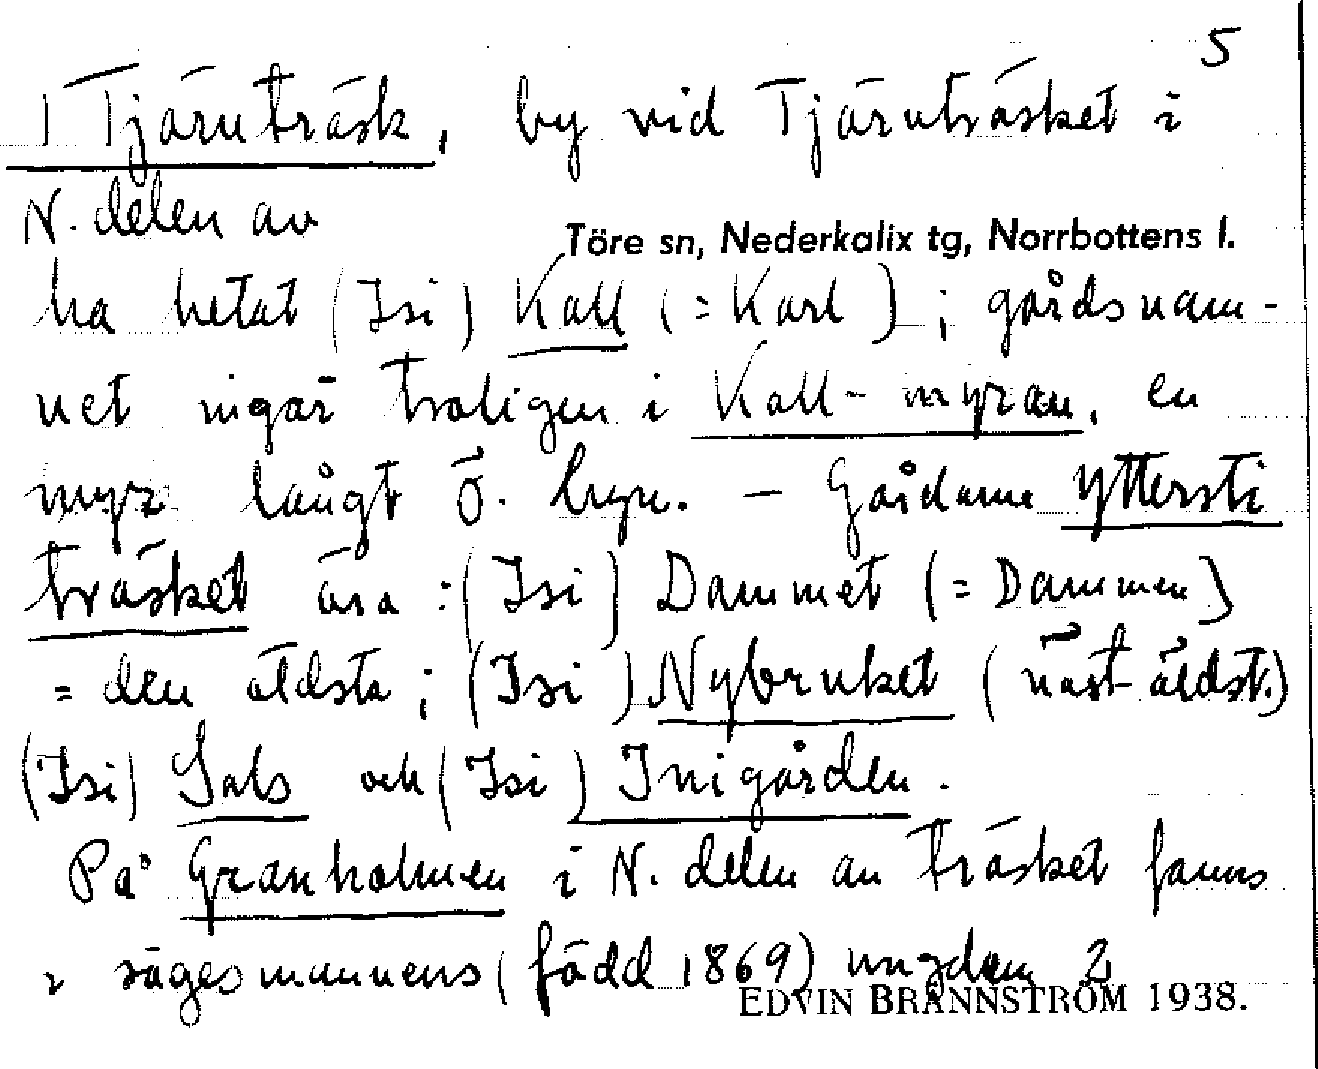 5
1 Tjärnträsk, by vid Tjärnträsket i
N. delen av
Töre sn, Nederkalix tg, Norrbottens l.
ha hetat (Isi) Kall (=Karl); gårdsnam-
net ingår troligen i Kall-myran, en
myr långt Ö. byn. — Gårdarna Yttersti
träsket äro: (Isi) Dammet (= Dammen)
= den äldsta; (Isi) Nybruket (näst äldst.)
(Isi) Sals och (Isi) Inigården.
På Granholmen i N. delen av träsket fanns
i sagesmannens (född 1869) ungdom 2
EDVIN BRÄNNSTRÖM 1938.